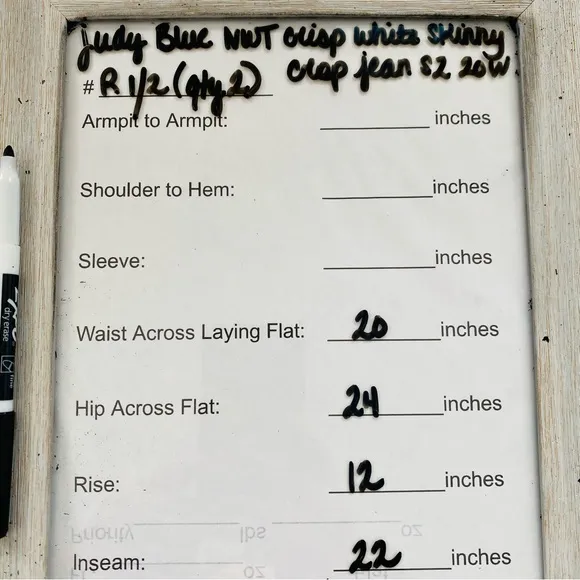 Judy Blue NWT crisp white Skinny
crop jean SZ 20W
# R 1/2 (qty 2)
Armpit to Armpit: ________ inches
Shoulder to Hem: ________ inches
Sleeve: ________ inches
Waist Across Laying Flat: 20 inches
Hip Across Flat: 24 inches
Rise: 12 inches
Priority ________ lbs ________ oz
Inseam: 22 inches
oz
dry erase
fine